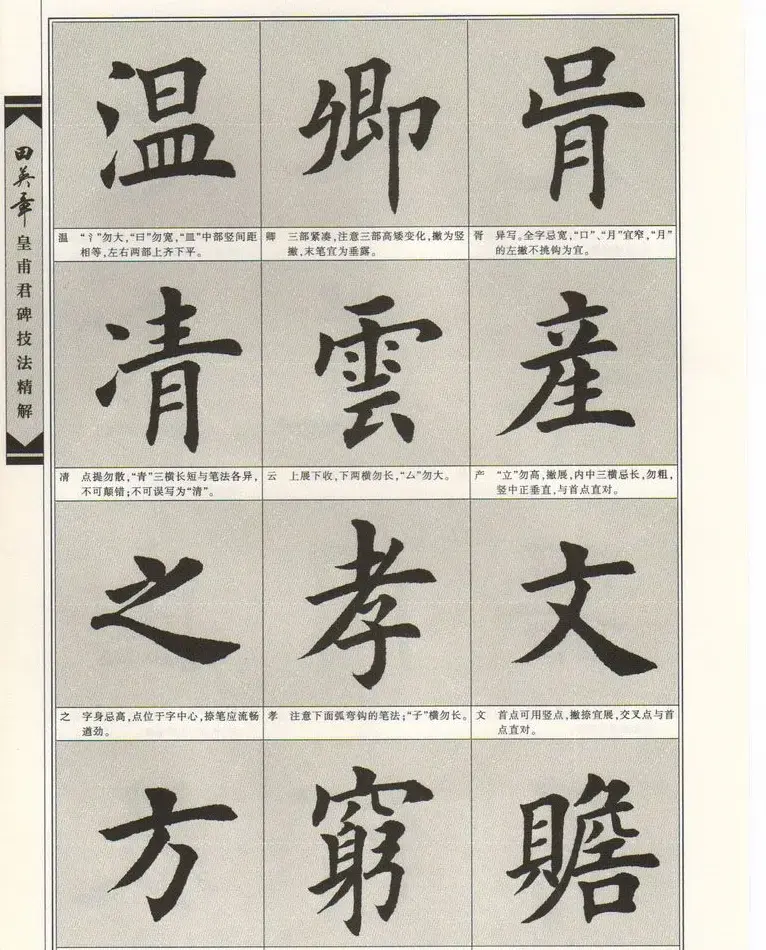 田英章
皇甫君碑技法精解
温 卿 胥
温 “氵”勿大，“曰”勿宽，“皿”中部竖间距
相等，左右两部上齐下平。
卿 三部紧凑，注意三部高矮变化，撇为竖
撇，末笔宜为垂露。
胥 异写。全字忌宽，“口”、“月”宜窄，“月”
的左撇不挑钩为宜。
凊 雲 産
清 点提勿散，“青”三横长短与笔法各异，
不可颠错；不可误写为“清”。
云 上展下收，下两横勿长，“厶”勿大。
产 “立”勿高，撇展，内中三横忌长，勿粗，
竖中正垂直，与首点直对。
之 孝 文
之 字身忌高，点位于字中心，捺笔应流畅
遒劲。
孝 注意下面弧弯钩的笔法；“子”横勿长。
文 首点可用竖点，撇捺宜展，交叉点与首
点直对。
方 窮 贍